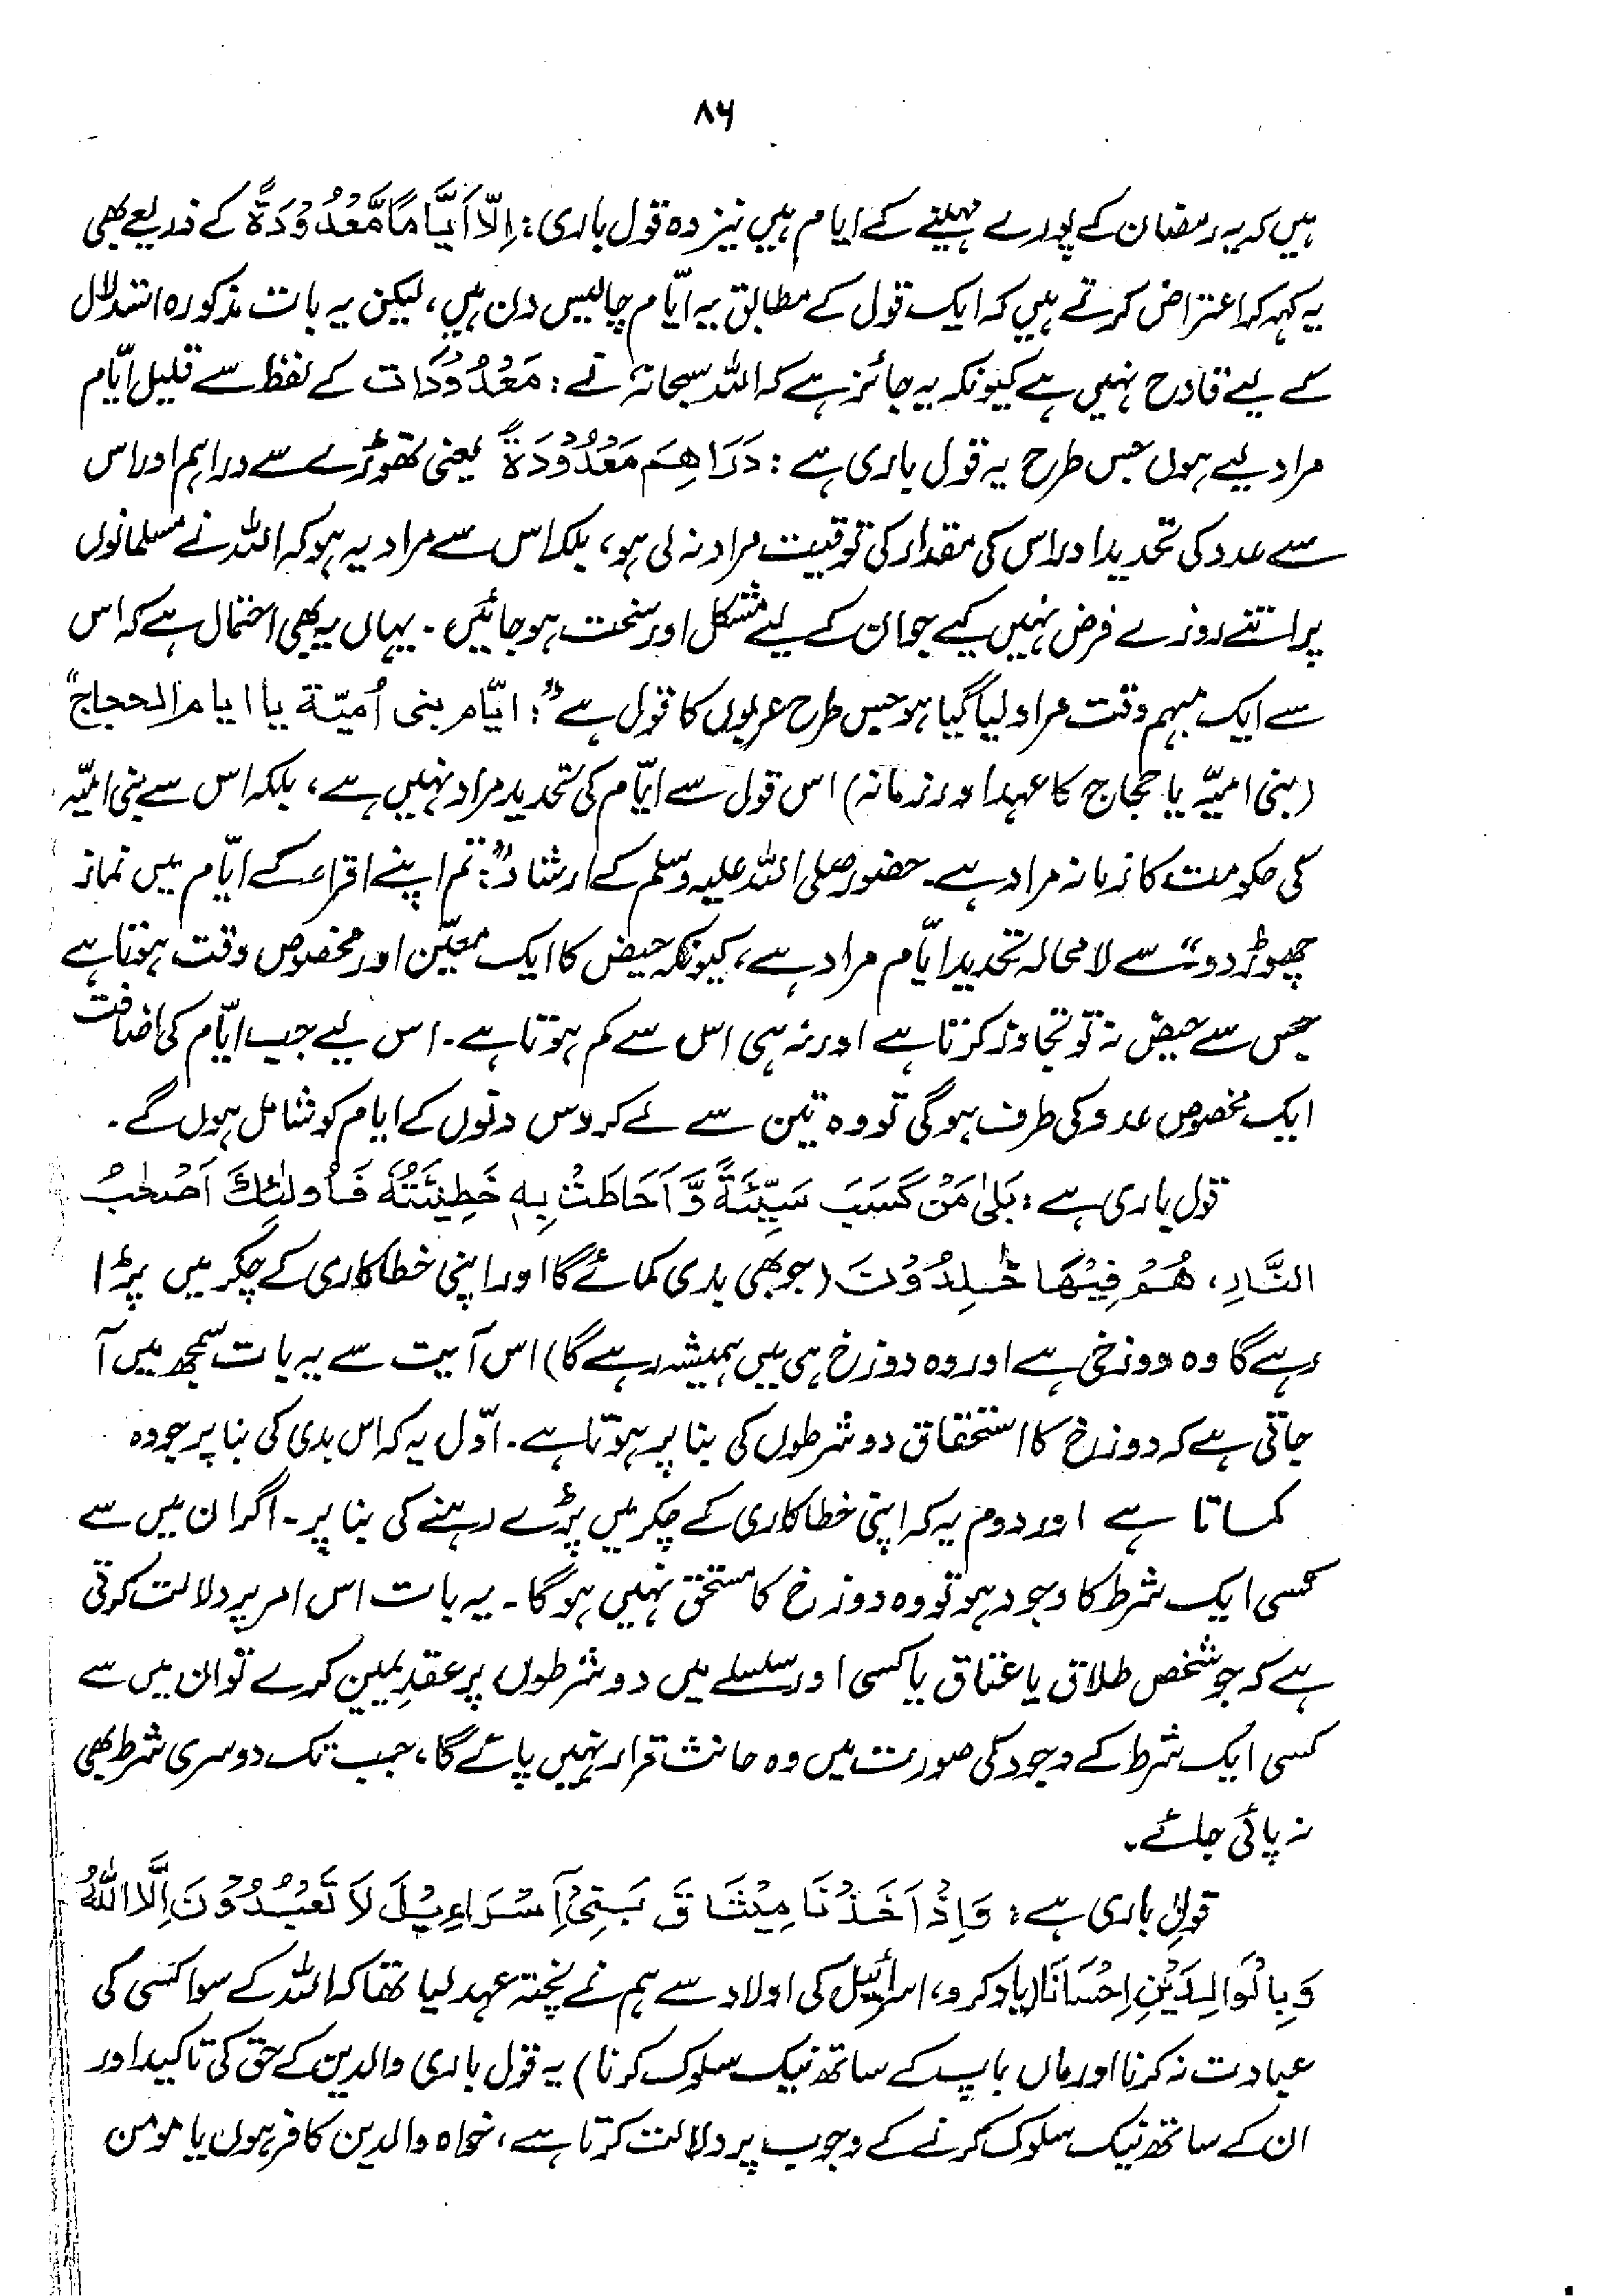 ۸۶
ہیں کہ یہ رمضان کے پورے مہینے کے ایام ہیں نیز وہ قول باری: اِلَّا اَيَّامًا مَّعْدُوْدَةً کے ذریعے بھی
یہ کہہ کر اعتراض کرتے ہیں کہ ایک قول کے مطابق یہ ایّام چالیس دن ہیں، لیکن یہ بات مذکورہ استدلال
کے لیے قادح نہیں ہے کیونکہ یہ جائز ہے کہ اللہ سبحانہٗ نے: مَعْدُوْدَات کے لفظ سے قلیل ایّام
مراد لیے ہوں جس طرح یہ قول باری ہے: دَرَاهِمَ مَعْدُوْدَةً یعنی تھوڑے سے دراہم اور اس
سے عدد کی تحدید اور اس کی مقدار کی توقیت مراد نہ لی ہو، بلکہ اس سے مراد یہ ہو کہ اللہ نے مسلمانوں
پر اتنے روزے فرض نہیں کیے جو ان کے لیے مشکل اور سخت ہو جائیں۔ یہاں یہ بھی احتمال ہے کہ اس
سے ایک مبہم وقت مراد لیا گیا ہو جس طرح عربوں کا قول ہے: "ایّام بنی اُمیّة یا ایام الحجاج"
(بنی امیّہ یا حجاج کا عہد اور زمانہ) اس قول سے ایّام کی تحدید مراد نہیں ہے، بلکہ اس سے بنی امیّہ
کی حکومت کا زمانہ مراد ہے۔ حضور صلی اللہ علیہ وسلم کے ارشاد: "تم اپنے اقراء کے ایّام میں نماز
چھوڑ دو" سے لامحالہ تحدید ایّام مراد ہے، کیونکہ حیض کا ایک معیّن اور مخصوص وقت ہوتا ہے
جس سے حیض نہ تو تجاوز کرتا ہے اور نہ ہی اس سے کم ہوتا ہے۔ اس لیے جب ایّام کی اضافت
ایک مخصوص عدد کی طرف ہو گی تو وہ تین سے لے کر دس دنوں کے ایام کو شامل ہوں گے۔
قول باری ہے: بَلٰى مَنْ كَسَبَ سَيِّئَةً وَّ اَحَاطَتْ بِهٖ خَطِيْئَتُهٗ فَاُولٰٓئِكَ اَصْحٰبُ
النَّارِ، هُمْ فِيْهَا خٰلِدُوْنَ (جو بھی بدی کمائے گا اور اپنی خطاکاری کے چکر میں پڑا
رہے گا وہ دوزخی ہے اور وہ دوزخ ہی میں ہمیشہ رہے گا) اس آیت سے یہ بات سمجھ میں آ
جاتی ہے کہ دوزخ کا استحقاق دو شرطوں کی بنا پر ہوتا ہے۔ اوّل یہ کہ اس بدی کی بنا پر جو وہ
کماتا ہے اور دوم یہ کہ اپنی خطاکاری کے چکر میں پڑے رہنے کی بنا پر۔ اگر ان میں سے
کسی ایک شرط کا وجود ہو تو وہ دوزخ کا مستحق نہیں ہو گا۔ یہ بات اس امر پر دلالت کرتی
ہے کہ جو شخص طلاق یا عتاق یا کسی اور سلسلے میں دو شرطوں پر عقدِ یمین کرے تو ان میں سے
کسی ایک شرط کے وجود کی صورت میں وہ حانث قرار نہیں پائے گا، جب تک دوسری شرط بھی
نہ پائی جائے۔
قولِ باری ہے: وَاِذْ اَخَذْنَا مِيْثَاقَ بَنِيْٓ اِسْرَاءِيْلَ لَا تَعْبُدُوْنَ اِلَّا اللّٰهَ
وَ بِالْوَالِدَيْنِ اِحْسَانًا (یاد کرو، اسرائیل کی اولاد سے ہم نے پختہ عہد لیا تھا کہ اللہ کے سوا کسی کی
عبادت نہ کرنا اور ماں باپ کے ساتھ نیک سلوک کرنا) یہ قول باری والدین کے حق کی تاکید اور
ان کے ساتھ نیک سلوک کرنے کے وجوب پر دلالت کرتا ہے، خواہ والدین کافر ہوں یا مومن